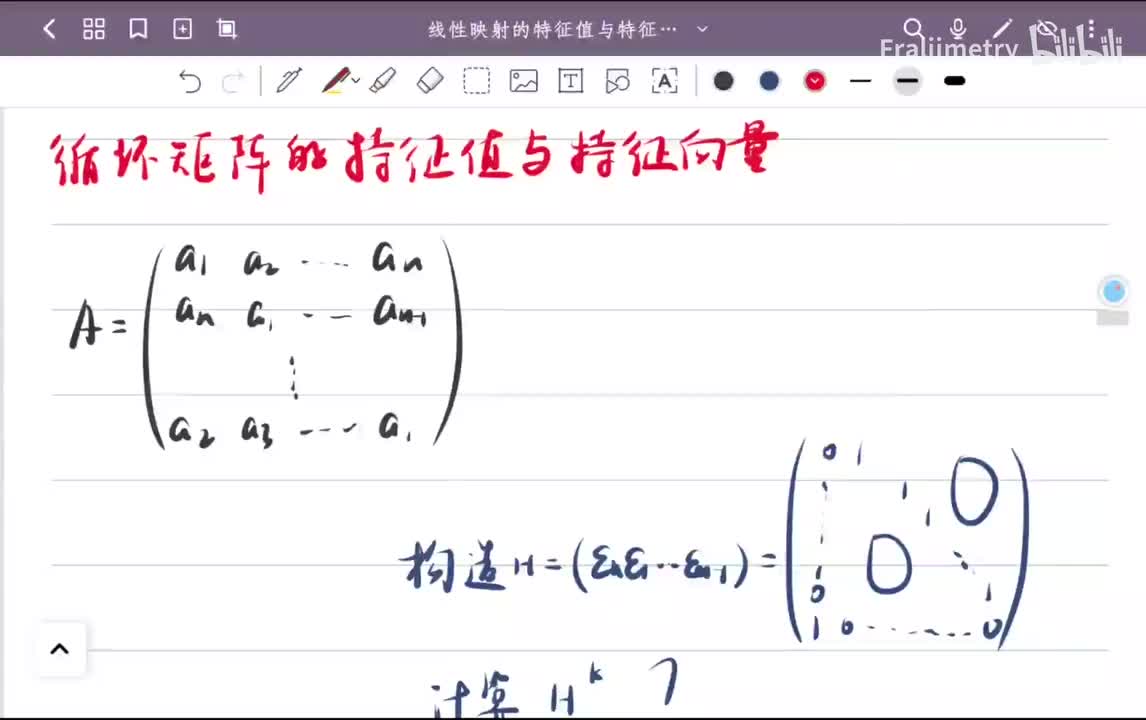 线性映射的特征值与特征…
Fraliimetry bilibili
循环矩阵的特征值与特征向量
A = ( a₁ a₂ ⋯ aₙ
aₙ a₁ ⋯ aₙ₋₁
⋮
a₂ a₃ ⋯ a₁ )
构造 H = (εₙ ε₁ ⋯ εₙ₋₁) = ( 0 1
⋮ 1 0
1
0 0 ⋱ 1
1 0 ⋯ 0 )
计算 Hᵏ ?